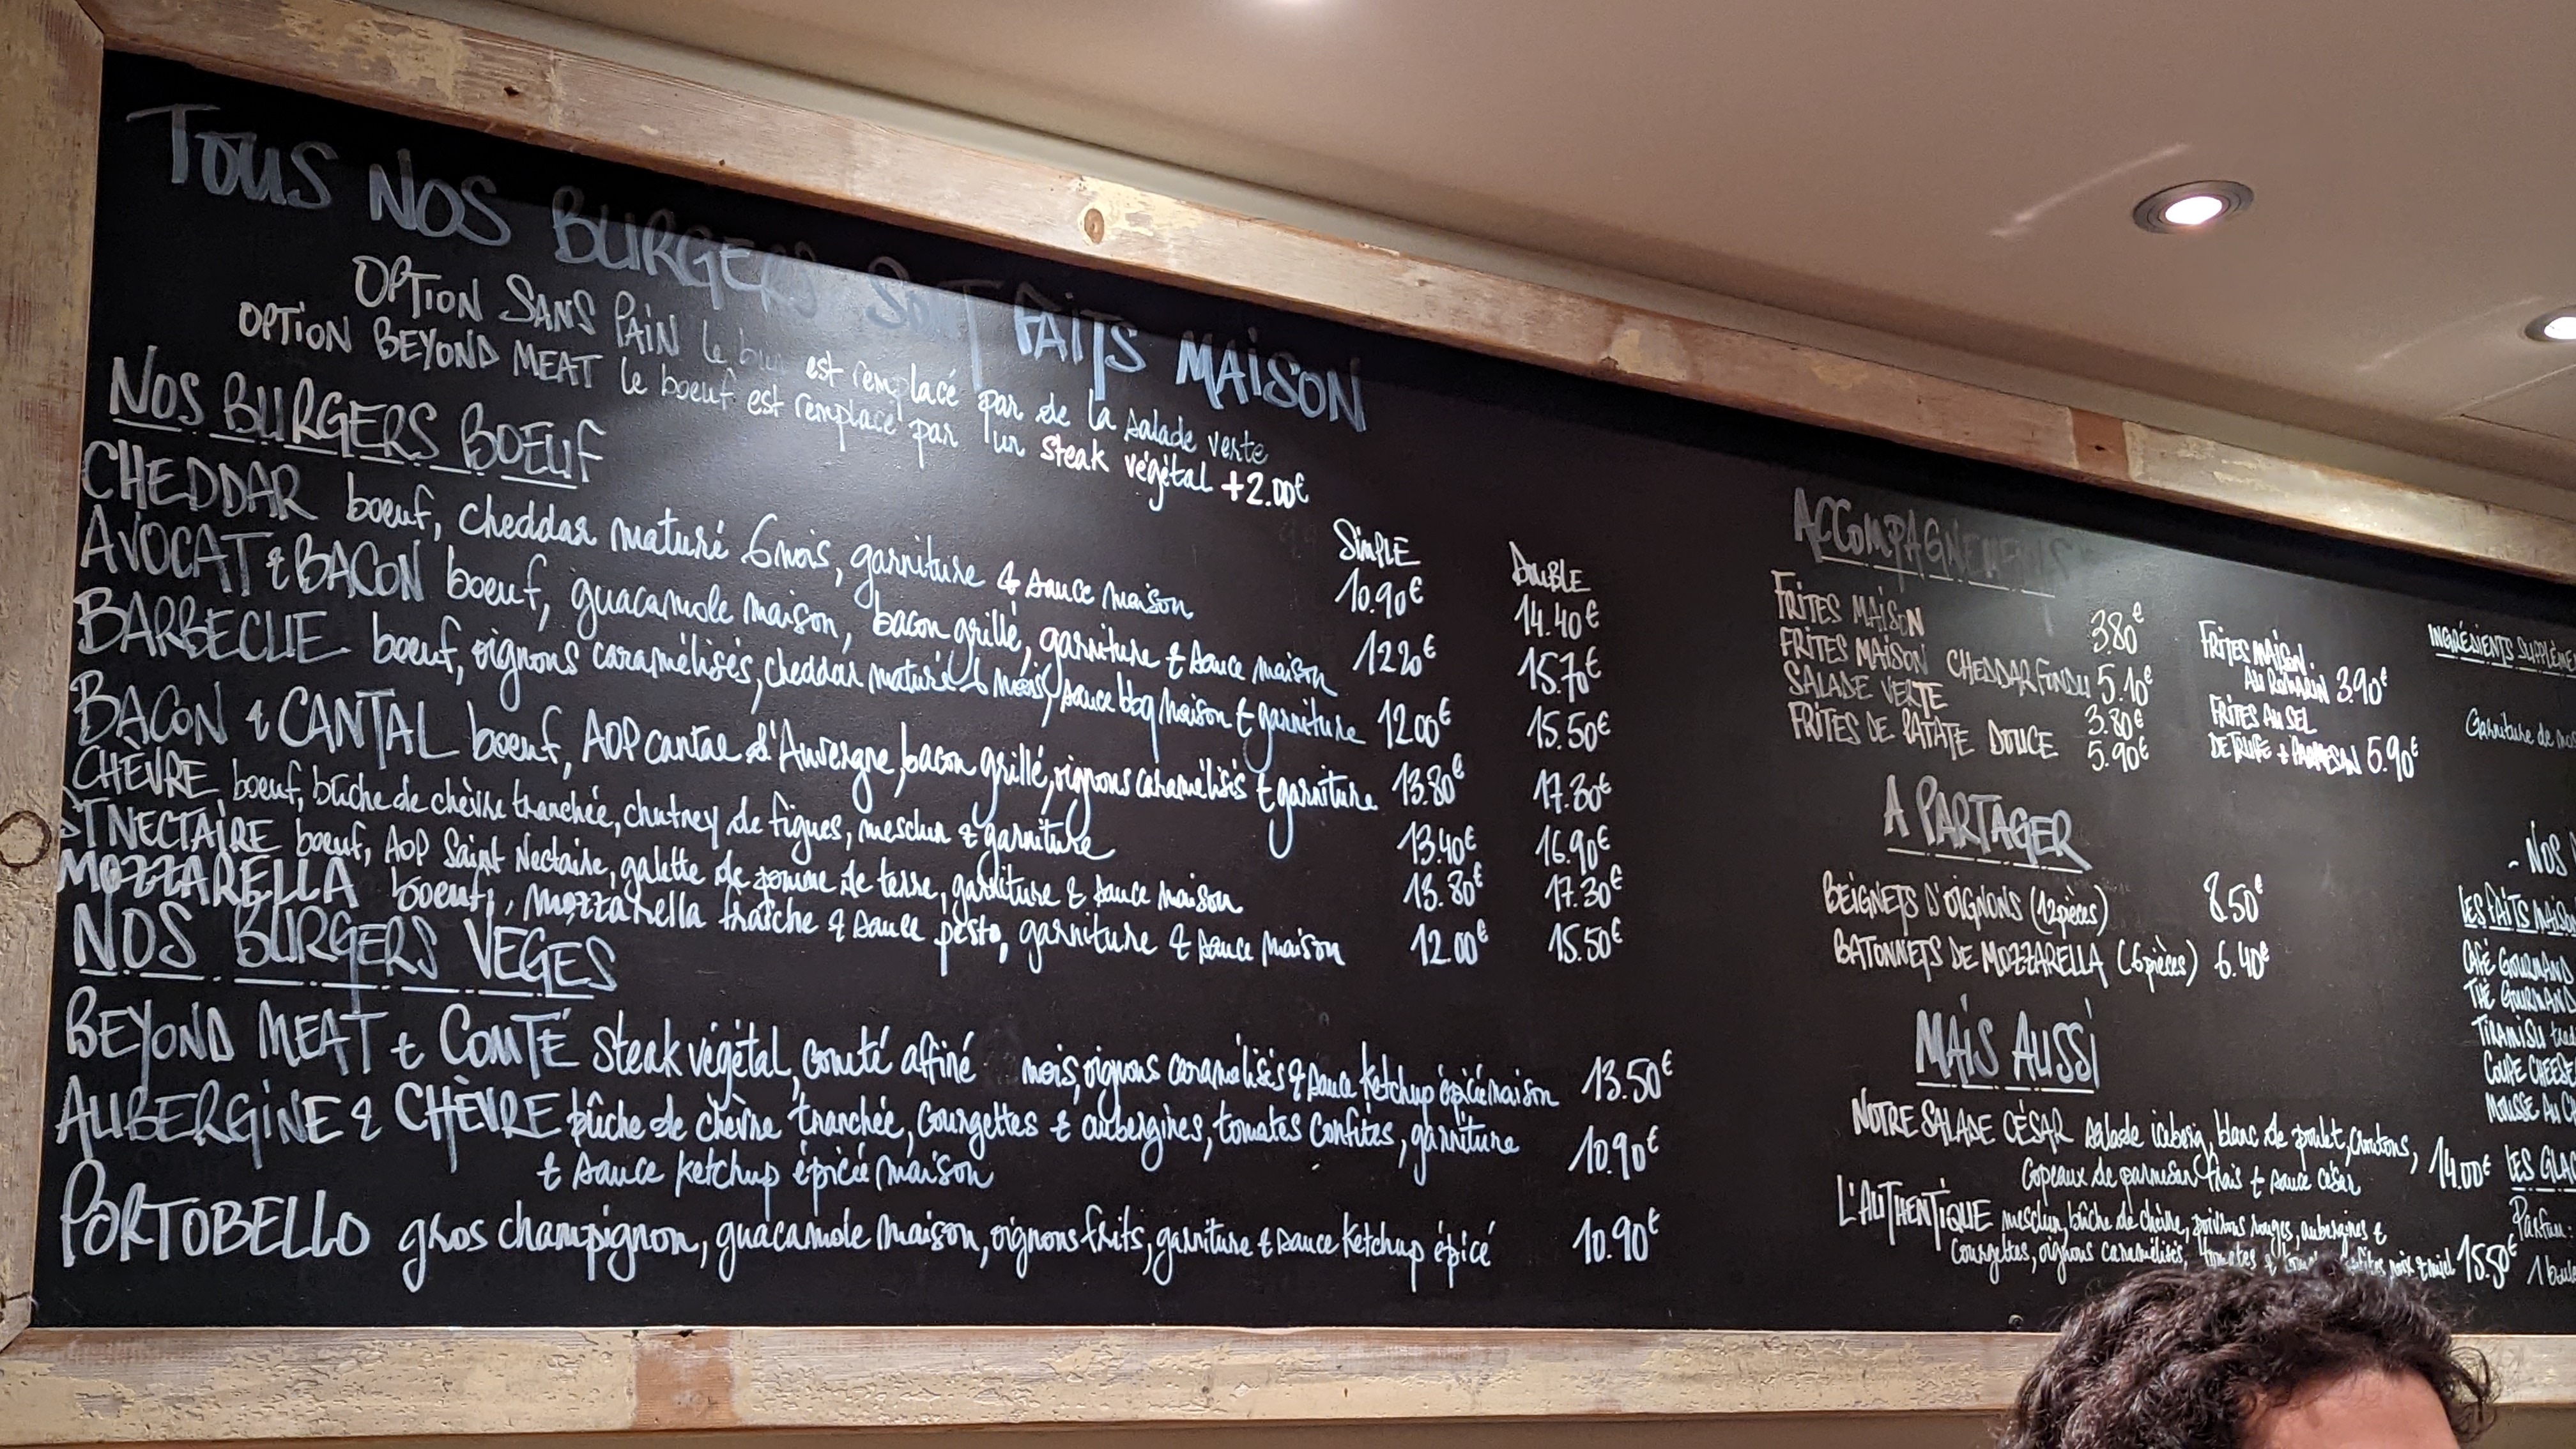 TOUS NOS BURGERS SONT FAITS MAISON
OPTION SANS PAIN le bun est remplacé par de la salade verte
OPTION BEYOND MEAT le boeuf est remplacé par un steak végétal +2.00€
NOS BURGERS BOEUF
SIMPLE DOUBLE
CHEDDAR boeuf, cheddar maturé 6 mois, garniture & sauce maison 10.90€ 14.40€
AVOCAT & BACON boeuf, guacamole maison, bacon grillé, garniture & sauce maison 12.20€ 15.70€
BARBECUE boeuf, oignons caramélisés, cheddar maturé 6 mois, sauce bbq maison & garniture 12.00€ 15.50€
BACON & CANTAL boeuf, AOP cantal d'Auvergne, bacon grillé, oignons caramélisés & garniture 13.80€ 17.30€
CHÈVRE boeuf, bûche de chèvre tranchée, chutney de figues, mesclun & garniture 13.40€ 16.90€
ST NECTAIRE boeuf, AOP Saint Nectaire, galette de pomme de terre, garniture & sauce maison 13.80€ 17.30€
MOZZARELLA boeuf, mozzarella fraîche & sauce pesto, garniture & sauce maison 12.00€ 15.50€
NOS BURGERS VEGES
BEYOND MEAT & COMTÉ steak végétal, comté affiné mois, oignons caramélisés & sauce ketchup épicé maison 13.50€
AUBERGINE & CHÈVRE bûche de chèvre tranchée, courgettes & aubergines, tomates confites, garniture
& sauce ketchup épicée maison 10.90€
PORTOBELLO gros champignon, guacamole maison, oignons frits, garniture & sauce ketchup épicé 10.90€
ACCOMPAGNEMENTS
FRITES MAISON 3.80€
FRITES MAISON CHEDDAR FONDU 5.10€
SALADE VERTE 3.80€
FRITES DE PATATE DOUCE 5.90€
FRITES MAISON
AU ROMARIN 3.90€
FRITES AU SEL
DE TRUFFE & PARMESAN 5.90€
A PARTAGER
BEIGNETS D'OIGNONS (12 pièces) 8.50€
BATONNETS DE MOZZARELLA (6 pièces) 6.40€
MAIS AUSSI
NOTRE SALADE CÉSAR salade iceberg, blanc de poulet, croutons,
copeaux de parmesan frais & sauce césar 14.00€
L'AUTHENTIQUE mesclun, bûche de chèvre, poivrons rouges, aubergines &
courgettes, oignons caramélisés, noix & miel 15.50€
INGRÉDIENTS
Garniture de
- NOS
LES FAITS MAISON
CAFÉ GOURMAND
THÉ GOURMAND
TIRAMISU
COUPE
MOUSSE AU
LES
Parfum
1